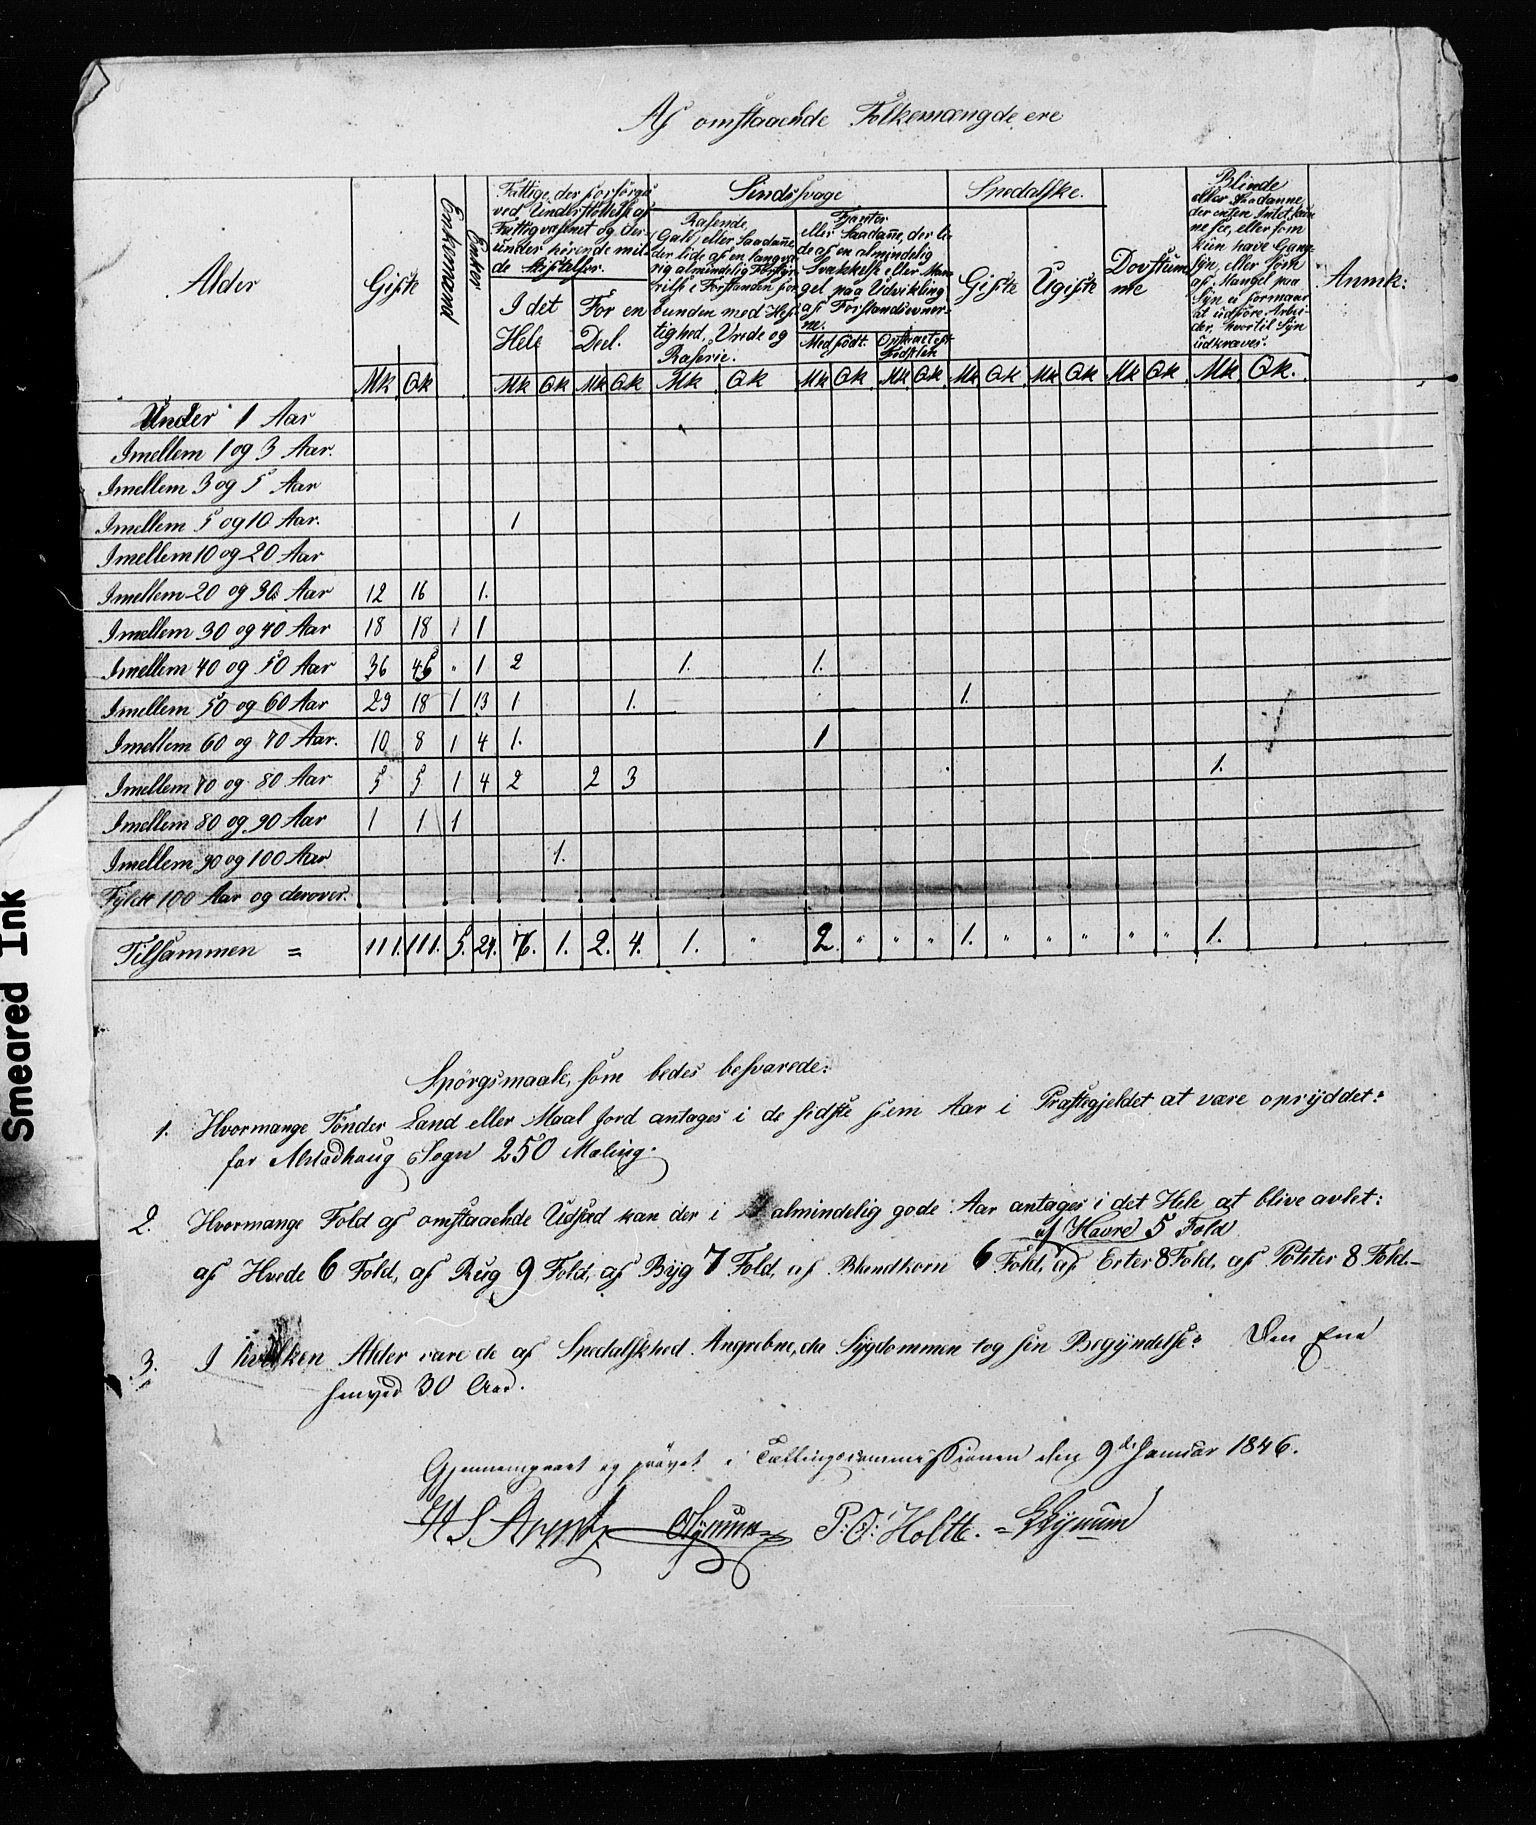 Af omstaaende Folkemængde ere
Alder
Gifte
Enkemænd
Enker
Fattige, der forsörges
ved Understöttelse af
Fattigvæsenet og der-
under hörende mil-
de Stiftelser.
I det Hele
For en Deel.
Sindssvage
Rasende
(Gale) eller Saadanne,
der lide af en langva-
rig almindelig Forstyr-
relse i Forstanden for-
bunden med Hef-
tighed, Vrede og
Raserie.
Fjanter
eller Saadanne, der li-
de af en almindelig
Svækkelse eller Man-
gel paa Udvikling
af Forstandsevner-
ne.
Medfödt
Opstaaet eft. Födselen
Spedalske.
Gifte
Ugifte
Dovstum
me
Blinde
eller Saadanne,
der enten Intet kun-
ne see, eller som
kun have Gang-
syn, eller som
af Mangel paa
Syn ei formaae
at udföre Arbei-
der, hvortil Syn
udkræves.
Anmk:
Mk Qk Mk Qk Mk Qk Mk Qk Mk Qk Mk Qk Mk Qk Mk Qk Mk Qk Mk Qk.
Under 1 Aar
Imellem 1 og 3 Aar.
Imellem 3 og 5 Aar
Imellem 5 og 10 Aar. 1
Imellem 10 og 20 Aar
Imellem 20 og 30 Aar 12 16 1.
Imellem 30 og 40 Aar 18 18 1 1
Imellem 40 og 50 Aar 36 45 " 1 2 1. 1.
Imellem 50 og 60 Aar 29 18 1 13 1. 1. 1.
Imellem 60 og 70 Aar. 10 8 1 4 1. 1
Imellem 70 og 80 Aar 5 5 1 4 2 2 3 1.
Imellem 80 og 90 Aar 1 1 1
Imellem 90 og 100 Aar 1.
Fyldt 100 Aar og derover.
Tilsammen = 111. 111. 5. 24. 1. 2. 4. 1. " 2. " " " 1. " " " " " 1.
Spörgsmaale, som bedes besvarede:
1. Hvormange Tönder Land eller Maal Jord antages i de sidste fem Aar i Præstegjeldet at være opryddet?
for Alstadhaug Sogn 250 Maling.
2. Hvormange Fold af omstaaende Udsæd kan der i almindelig gode Aar antages i det Hele at blive avlet:
af Havre 5 Fold
af Hvede 6 Fold, af Rug 9 Fold, af Byg 7 Fold, af Blandkorn 6 Fold, af Erter 8 Fold, af Poteter 8 Fold.-
3. I hvilken Alder vare de af Spedalskhed Angrebne, da Sygdommen tog sin Begyndelse? Den Ene
henved 30 Aar.
Gjennemgaaet og prövet i Tællingscommissionen den 9de Januar 1846.
P: O: Holte.
Smeared Ink